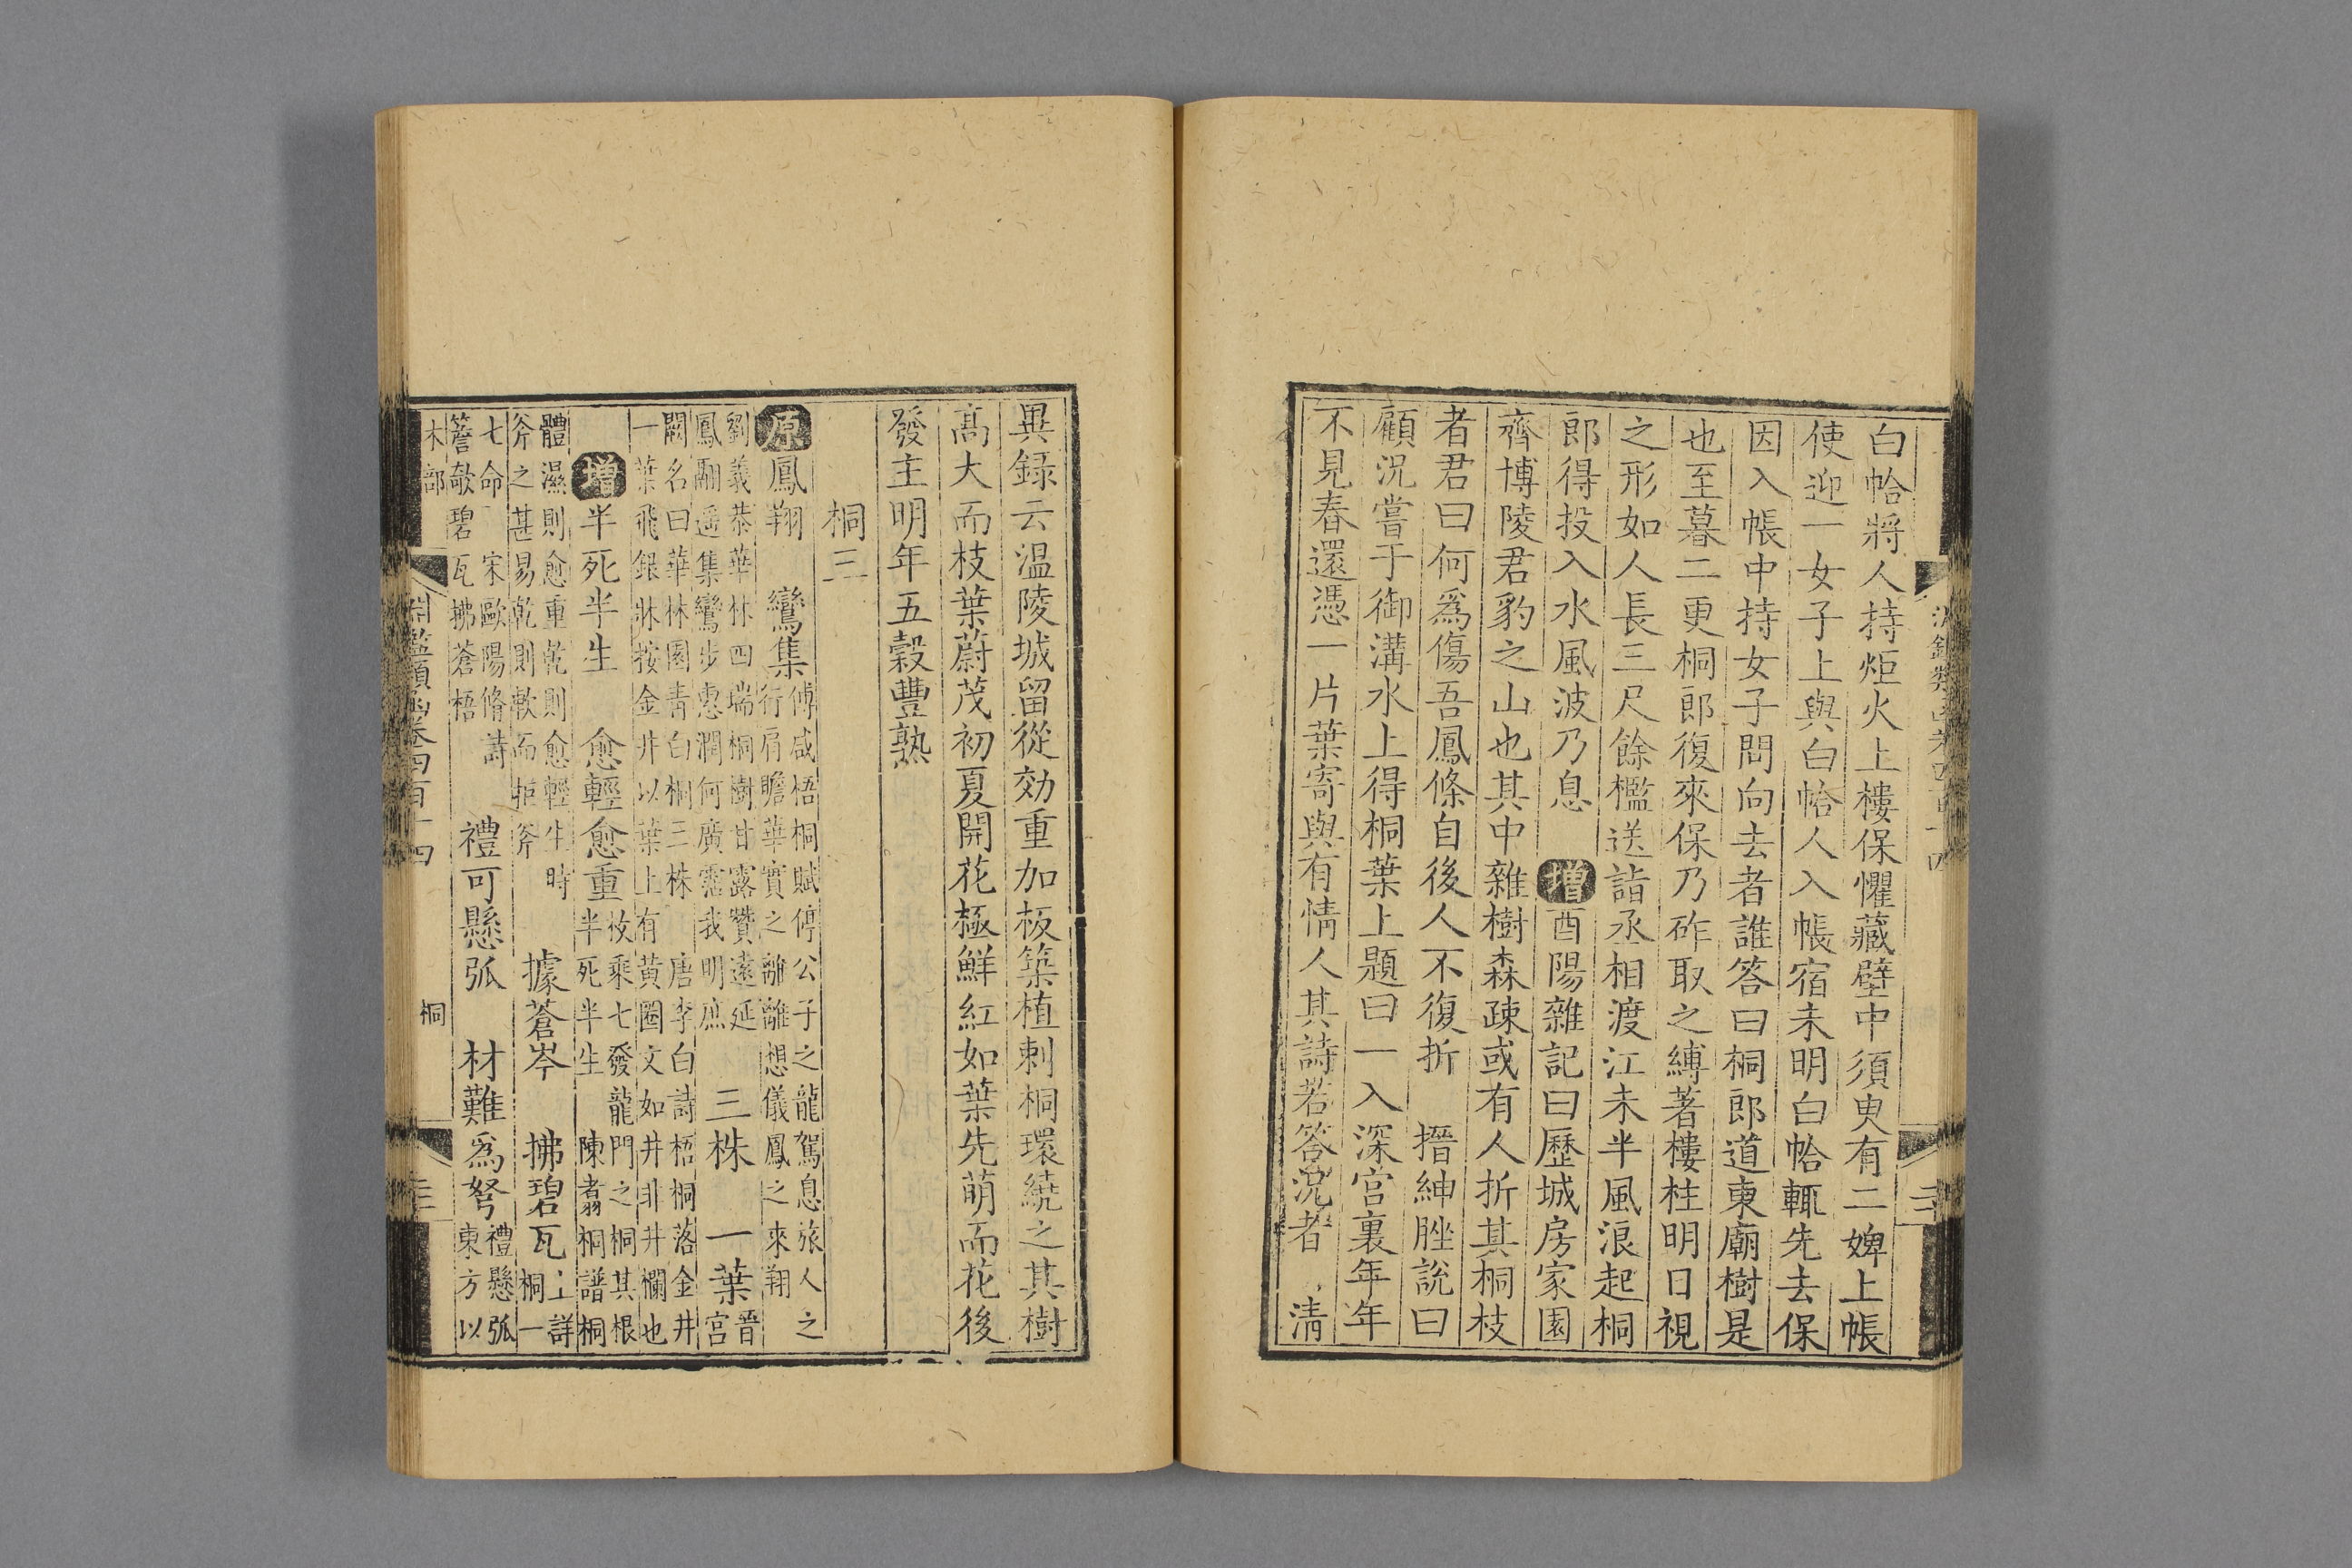 白帢將人持炬火上樓保懼藏壁中須臾有二婢上帳
使迎一女子上與白帢人入帳宿未明白帢輒先去保
因入帳中持女子問向去者誰答曰桐郎道東廟樹是
也至暮二更桐郎復來保乃斫取之縛著樓柱明日視
之形如人長三尺餘檻送詣丞相渡江未半風浪起桐
郎得投入水風波乃息 增酉陽雜記曰歷城房家園
齊博陵君豹之山也其中雜樹森疎或有人折其桐枝
者君曰何爲傷吾鳳條自後人不復折 搢紳脞說曰
顧況嘗于御溝水上得桐葉上題曰一入深宫裏年年
不見春還憑一片葉寄與有情人其詩若答況者 清
異録云温陵城留從効重加板築植刺桐環繞之其樹
髙大而枝葉蔚茂初夏開花極鮮紅如葉先萌而花後
發主明年五穀豐熟
桐三
原鳳翔 鸞集傅咸梧桐賦停公子之龍駕息旅人之
行肩瞻華實之離離想儀鳳之來翔
劉義恭華林四瑞桐樹甘露贊遠延
鳳翮遥集鸞步惠潤何廣霑我明庶 三株 一葉晉宫
闕名曰華林園青白桐三株 唐李白詩梧桐落金井
一葉飛銀牀按金井以葉上有黄圈文如井非井欄也
增半死半生 愈輕愈重枚乘七發龍門之桐其根
半死半生 陳翥桐譜桐
體濕則愈重乾則愈輕生時
斧之甚易乾則軟而拒斧 據蒼岑 拂碧瓦上詳桐一
七命 宋歐陽脩詩
簷欹碧瓦拂蒼梧 禮可懸弧 材難爲弩禮懸弧
東方以
木部
淵鑑類函卷四百十四
桐